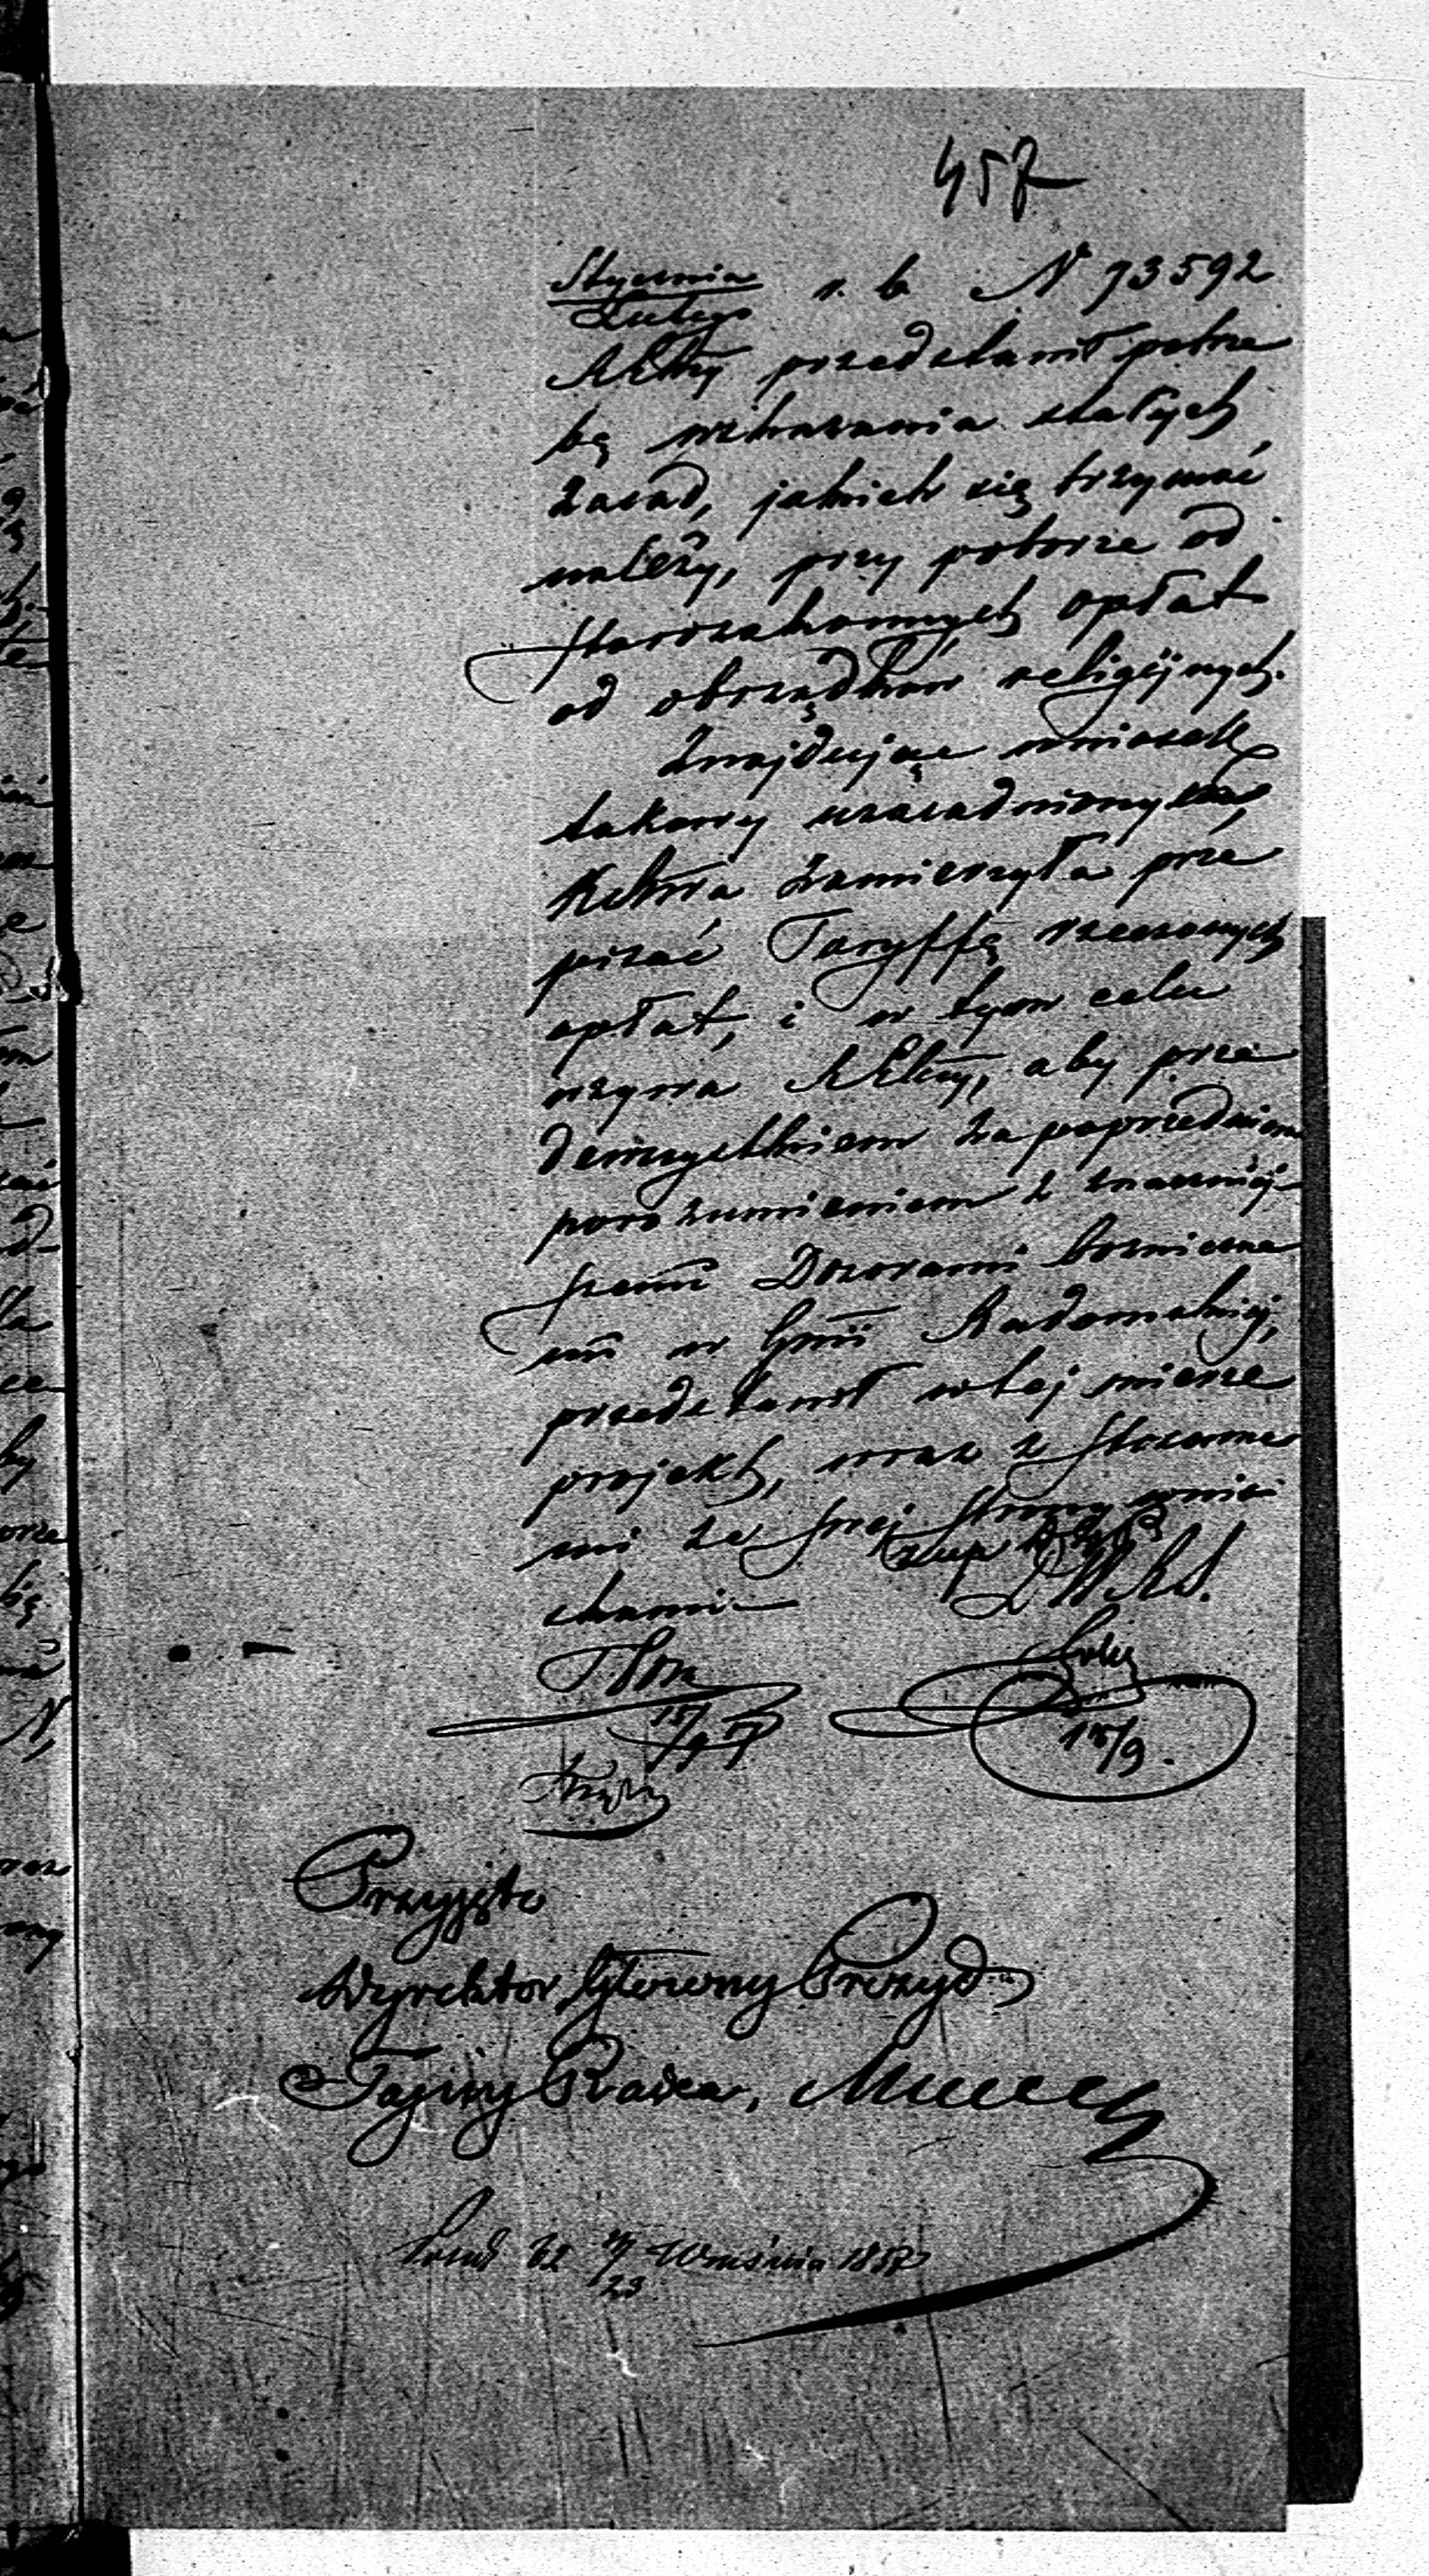 457
Stycznia
Lutego r. b. N 73592
przedstawił potrze
bę wskazania stałych
zasad, jakich się trzymać
należy, przy poborze od
starozakonnych opłat
od obrządków religijnych.
Znajdując wniosek
takowy uzasadnionym
zamierzyła prze
pisać Taryffę rzeczonych
opłat, i w tym celu
wzywa aby prze
dewszystkiem za poprzedniem
porozumieniem z znaczniej
szemi Dozorami bożnicze
mi w Gnii Radomskiej,
przedstawił w tej mierze
projekt, wraz z stosowne
mi ze swej strony wnios
kami
15/9 57
15/9.
Przyjęto
Dyrektor Główny Prezyd
Tajny Radca,
23 Września 1857